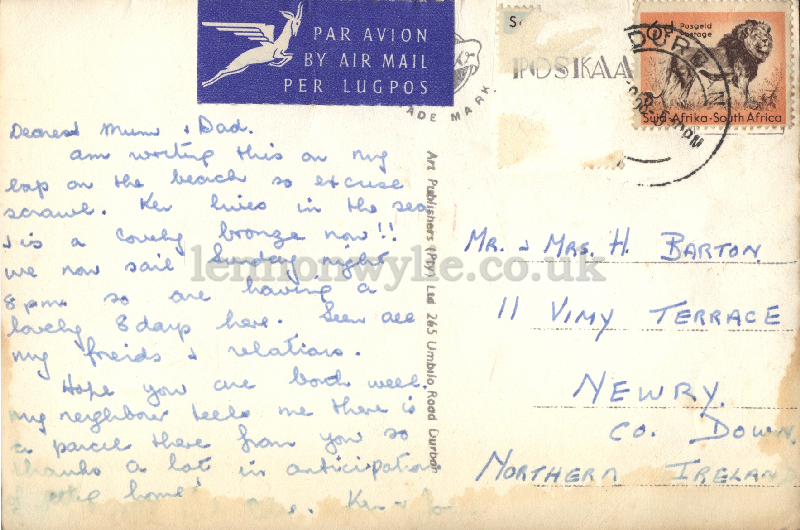 PAR AVION
BY AIR MAIL
PER LUGPOS
TRADE MARK
POSKAA
DURBAN
Posgeld
Postage
Suid-Afrika-South Africa
Dearest Mum & Dad.
am writing this on my
lap on the beach so excuse
scrawl. Ken lives in the sea
& is a lovely bronze now!!
we now sail Sunday night
8pm so are having a
lovely 8 days here. Seen all
my freids & relations.
Hope you are both well.
my neighbour tells me there is
a parcel there from you so
thanks a lot in anticipation
home!
Ken & Jo
Art Publishers (Pty) Ltd 265 Umbilo Road Durban
Mr. & Mrs. H. Barton
11 Vimy Terrace
Newry.
Co. Down.
Northern Ireland
lennonwylie.co.uk